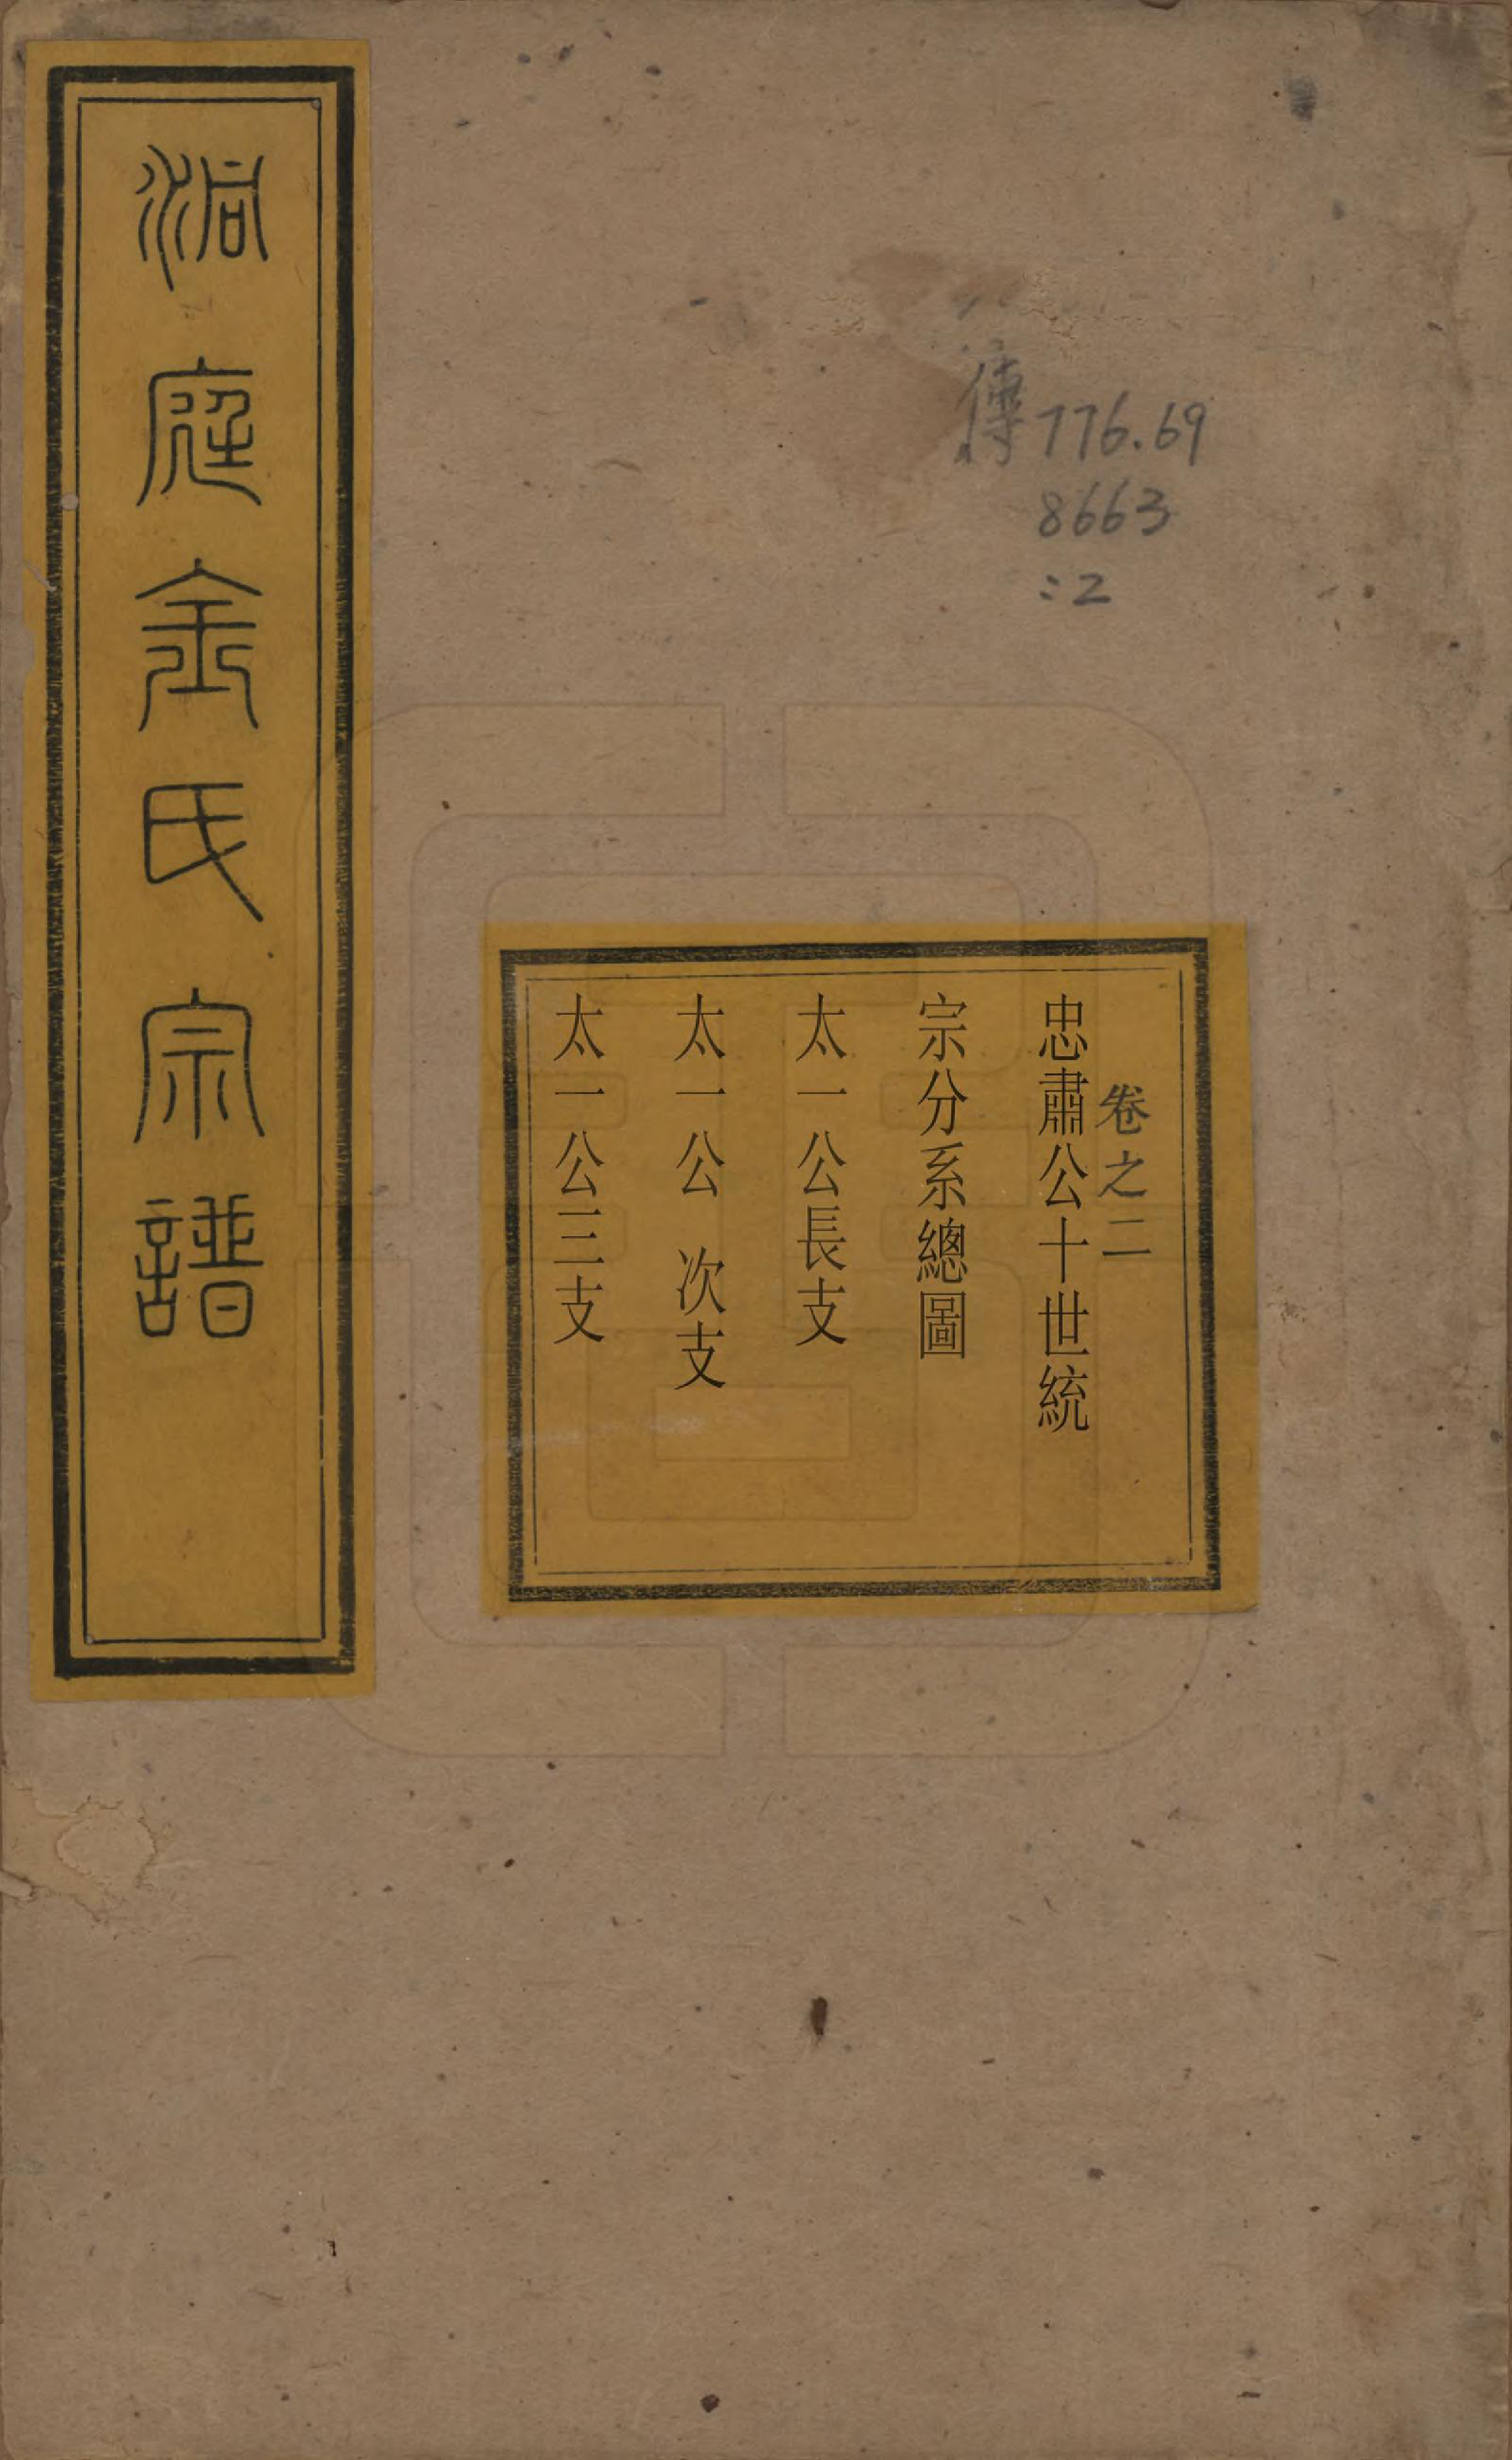 洞庭金氏宗譜
傳776.69
8663
:2
卷之二
忠肅公十世統
宗分系總圖
太一公長支
太一公 次支
太一公三支